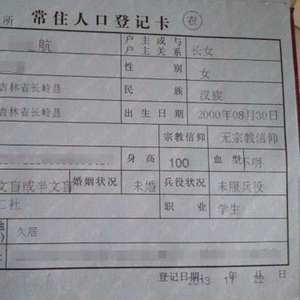 所 常住人口登记卡 农
航 户主或与户主关系 长女
性别 女
吉林省长岭县 民族 汉族
吉林省长岭县 出生日期 2000年08月30日
宗教信仰 无宗教信仰
身高 100 血型 不明
文盲或半文盲 婚姻状况 未婚 兵役状况 未服兵役
二社 职业 学生
久居
登记日期: 2013 年 11 月 22 日